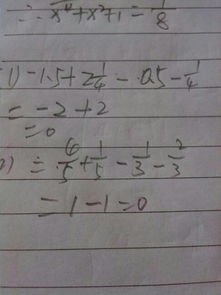 ∴ x⁴+x²+1 = 1/8
1) -1.5+2 1/4 - 0.5 - 1/4
= -2+2
=0
= 6/5 + 1/5 - 1/3 - 2/3
= 1-1=0